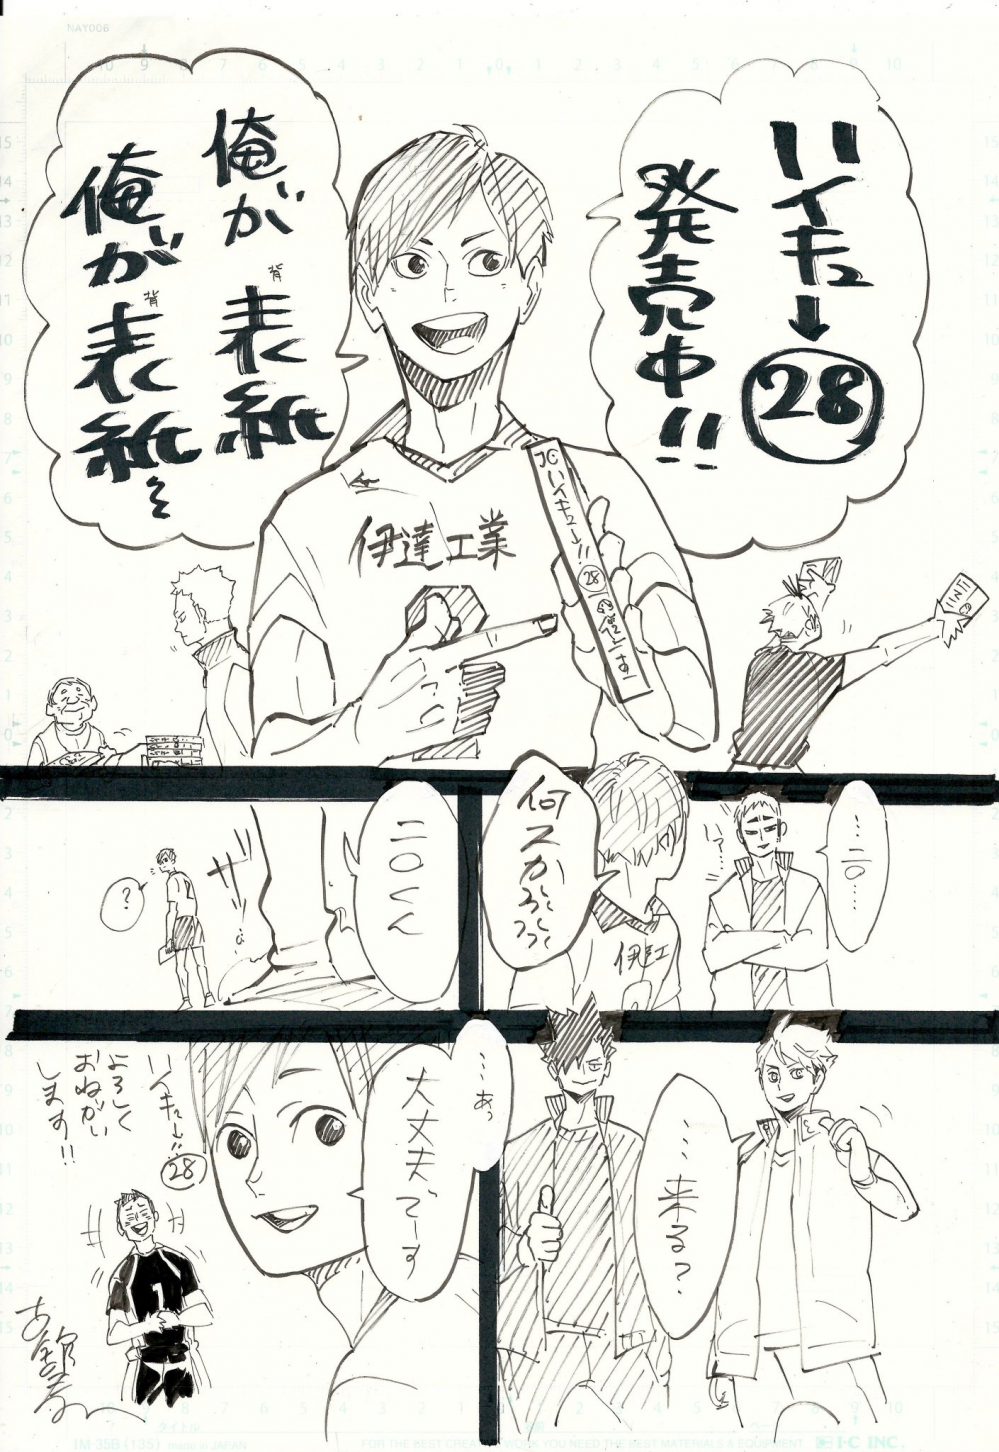 ハイキュー
28
発売中!!
俺が表紙
背
俺が表紙
背
伊達工業
JCハイキュー!!
28
の背です
……二口……
何スか
伊達工
二口くん
?
…来る?
…あっ
大丈夫でーす
ハイキュー!!
28
よろしく
おねがい
します!!
1
NAY006
タイトル
IM-35B (135) made in JAPAN
FOR THE BEST CREATIVE WORK YOU NEED THE BEST MATERIALS & EQUIPMENT.
I·C INC.